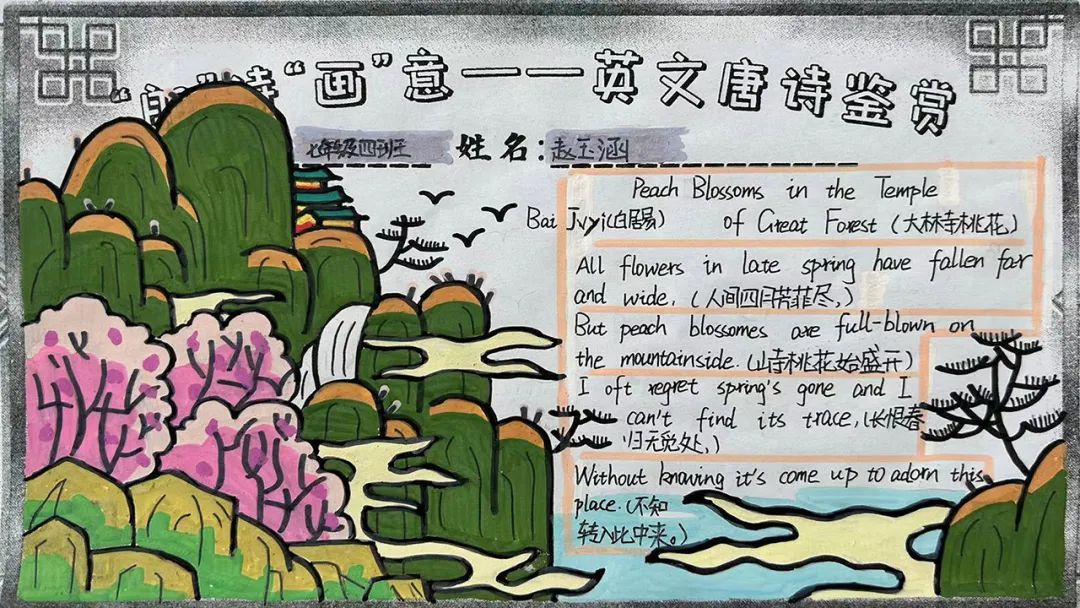 诗“画”意——英文唐诗鉴赏
七年级四班 姓名:赵玉涵
Peach Blossoms in the Temple
Bai Jvyi(白居易) of Great Forest (大林寺桃花)
All flowers in late spring have fallen far
and wide. (人间四月芳菲尽,)
But peach blossomes are full-blown on
the mountainside. (山寺桃花始盛开)
I oft regret spring's gone and I
can't find its trace, (长恨春
归无觅处,)
Without knowing it's come up to adorn this
place. (不知
转入此中来。)